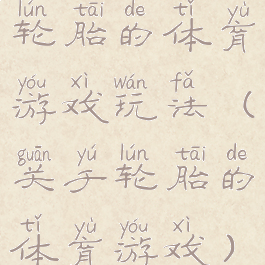 lún tāi de tǐ yù
轮胎的体育
yóu xì wán fǎ
游戏玩法（
guān yú lún tāi de
关于轮胎的
tǐ yù yóu xì
体育游戏）